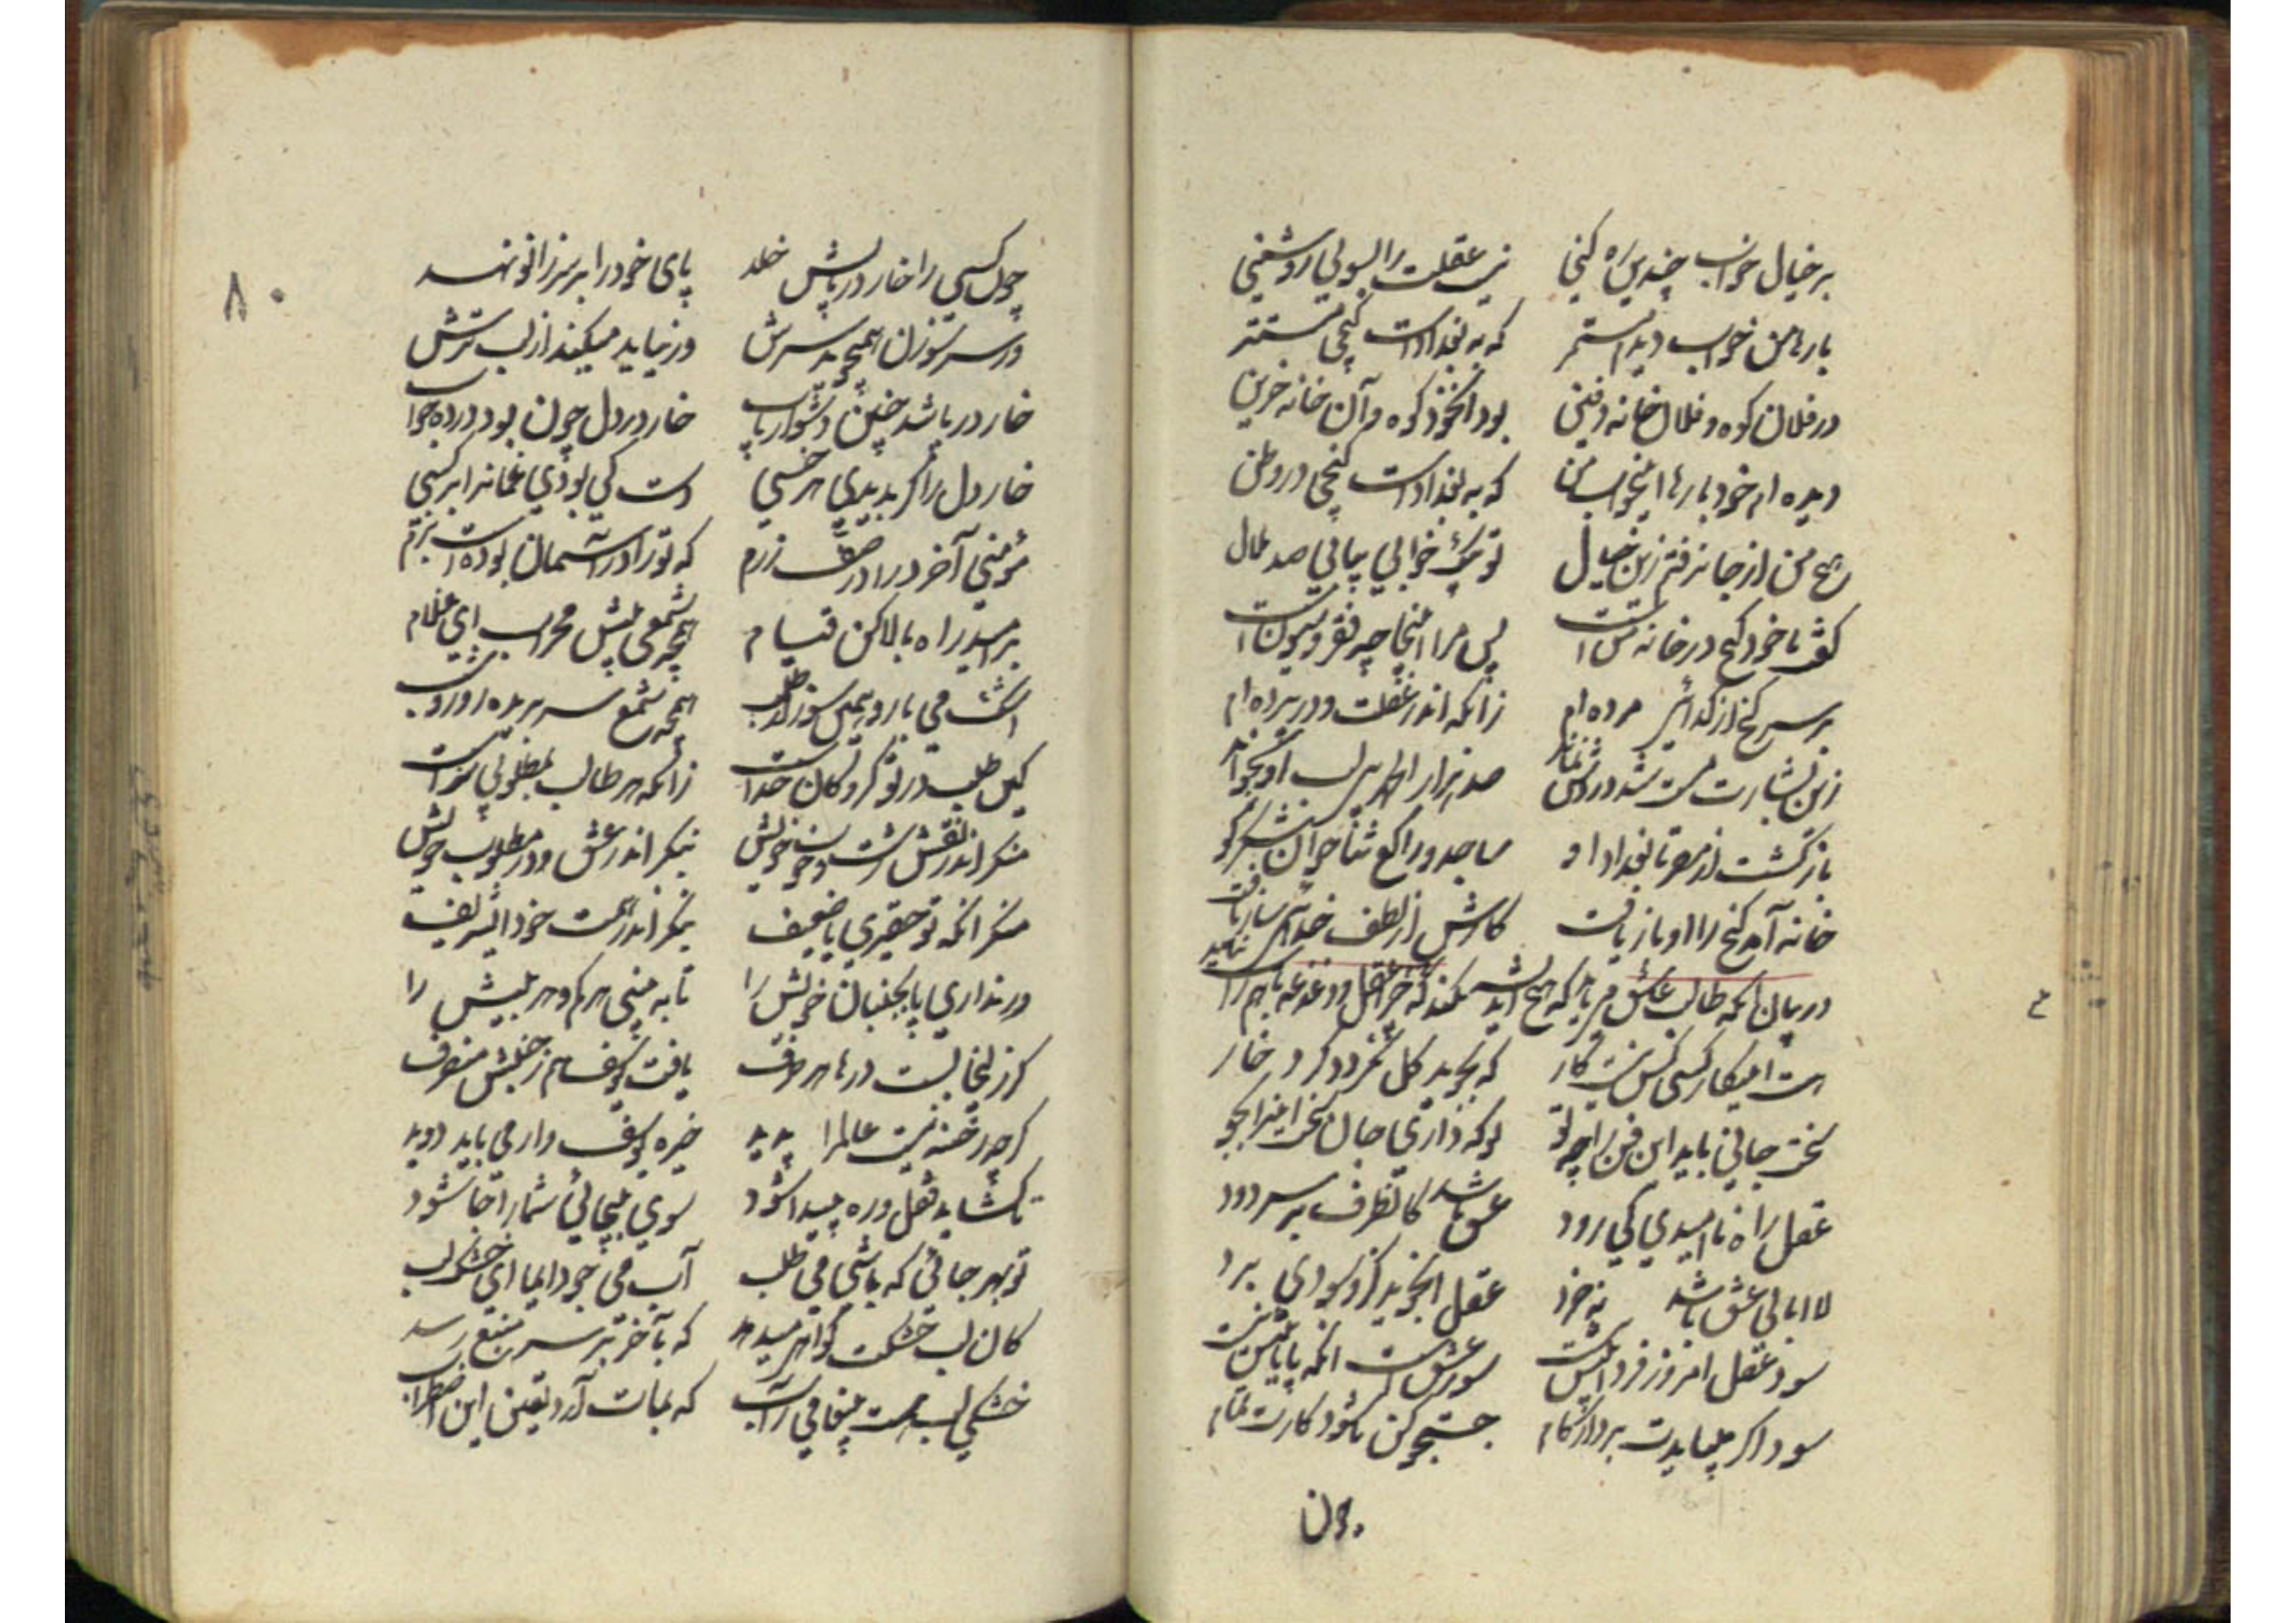 بر خیال خواب چندین ره کنی نیست عقلت را بسوئی روشنی
بارها من خواب دیدم مستمر که به بغداد است گنجی مستتر
در فلان کوه و فلان خانه دفین بود آنخود کوه و آن خانه حزین
دیده ام خود بارها اینخواب من که به بغداد است گنجی در وطن
هیچ من از جا نرفتم زین خیال تو بیک خوابی بیایی صد ملال
گفت با خود گنج در خانه منست پس مرا اینجا چه فقر و شیونست
بر سر گنج از گدائی مرده ام زانکه اندر غفلت و در پرده ام
زین بشارت مست شد دردش نماند صد هزار الحمد بی لب او بخواند
باز گشت از مصر تا بغداد او ساجد و راکع ثناخوان شکرگو
خانه آمد گنج را او باز یافت کارش از لطف خدائی ساز یافت
در بیان آنکه طالب عاشق میباید که هیچ اندیشه نکند که خر عقل و دغدغه با هم راست نیاید
هست اینکار کسی کش نیست کار که بجوید گل نگردد گرد خار
سخت جانی باید این فن را چو تو تو که داری جان سخت اینرا بجو
عقل راه ناامیدی کی رود عشق باشد کانطرف بر سر دود
لاابالی عشق باشد نه خرد عقل آنجوید کزو سودی برد
سود عقل امروز فردا نیستست سود عشقست آنکه پایانیش نیست
سود اگر میبایدت بردار گام جستجو کن تا شود کارت تمام
چون
۸۰
چون کسی را خار در پایش خلد پای خود را بر سر زانو نهد
در سر سوزن همی جوید سرش ور نیابد میکند از لب ترش
خار در پا شد چنین دشوار یاب خار در دل چون بود در ده جواب
خار دل را گر بدیدی هر خسی دست کی بودی غمانرا بر کسی
مؤمنی آخر در آ در صف رزم که تو را در آسمان بوده است بزم
بر امید راه بالا کن قیام همچو شمعی پیش محراب ای غلام
اشک می بار و همی سوز از طلب همچو شمع سر بریده روز و شب
کین طلب در تو گروگان خداست زانکه هر طالب بمطلوبی سزاست
منگر اندر نقش زشت و خوب خویش بنگر اندر عشق و در مطلوب خویش
منگر آنکه تو حقیری یا ضعیف بنگر اندر همت خود ای شریف
ور نداری پا بجنبان خویش را تا به بینی هر کم و هر بیش را
گر زلیخا بست درها هر طرف یافت یوسف هم ز جنبش منصرف
گرچه رخنه نیست عالم را پدید خیره یوسف وار می باید دوید
تا گشاید قفل و ره پیدا شود سوی بیجائی شما را جا شود
تو بهر جائی که باشی می طلب آب می جو دایما ای خشک لب
کان لب خشکت گواهی میدهد که بآخر بر سر منبع رسد
خشکی لب هست پیغامی ز آب که بمات آرد یقین این اضطراب